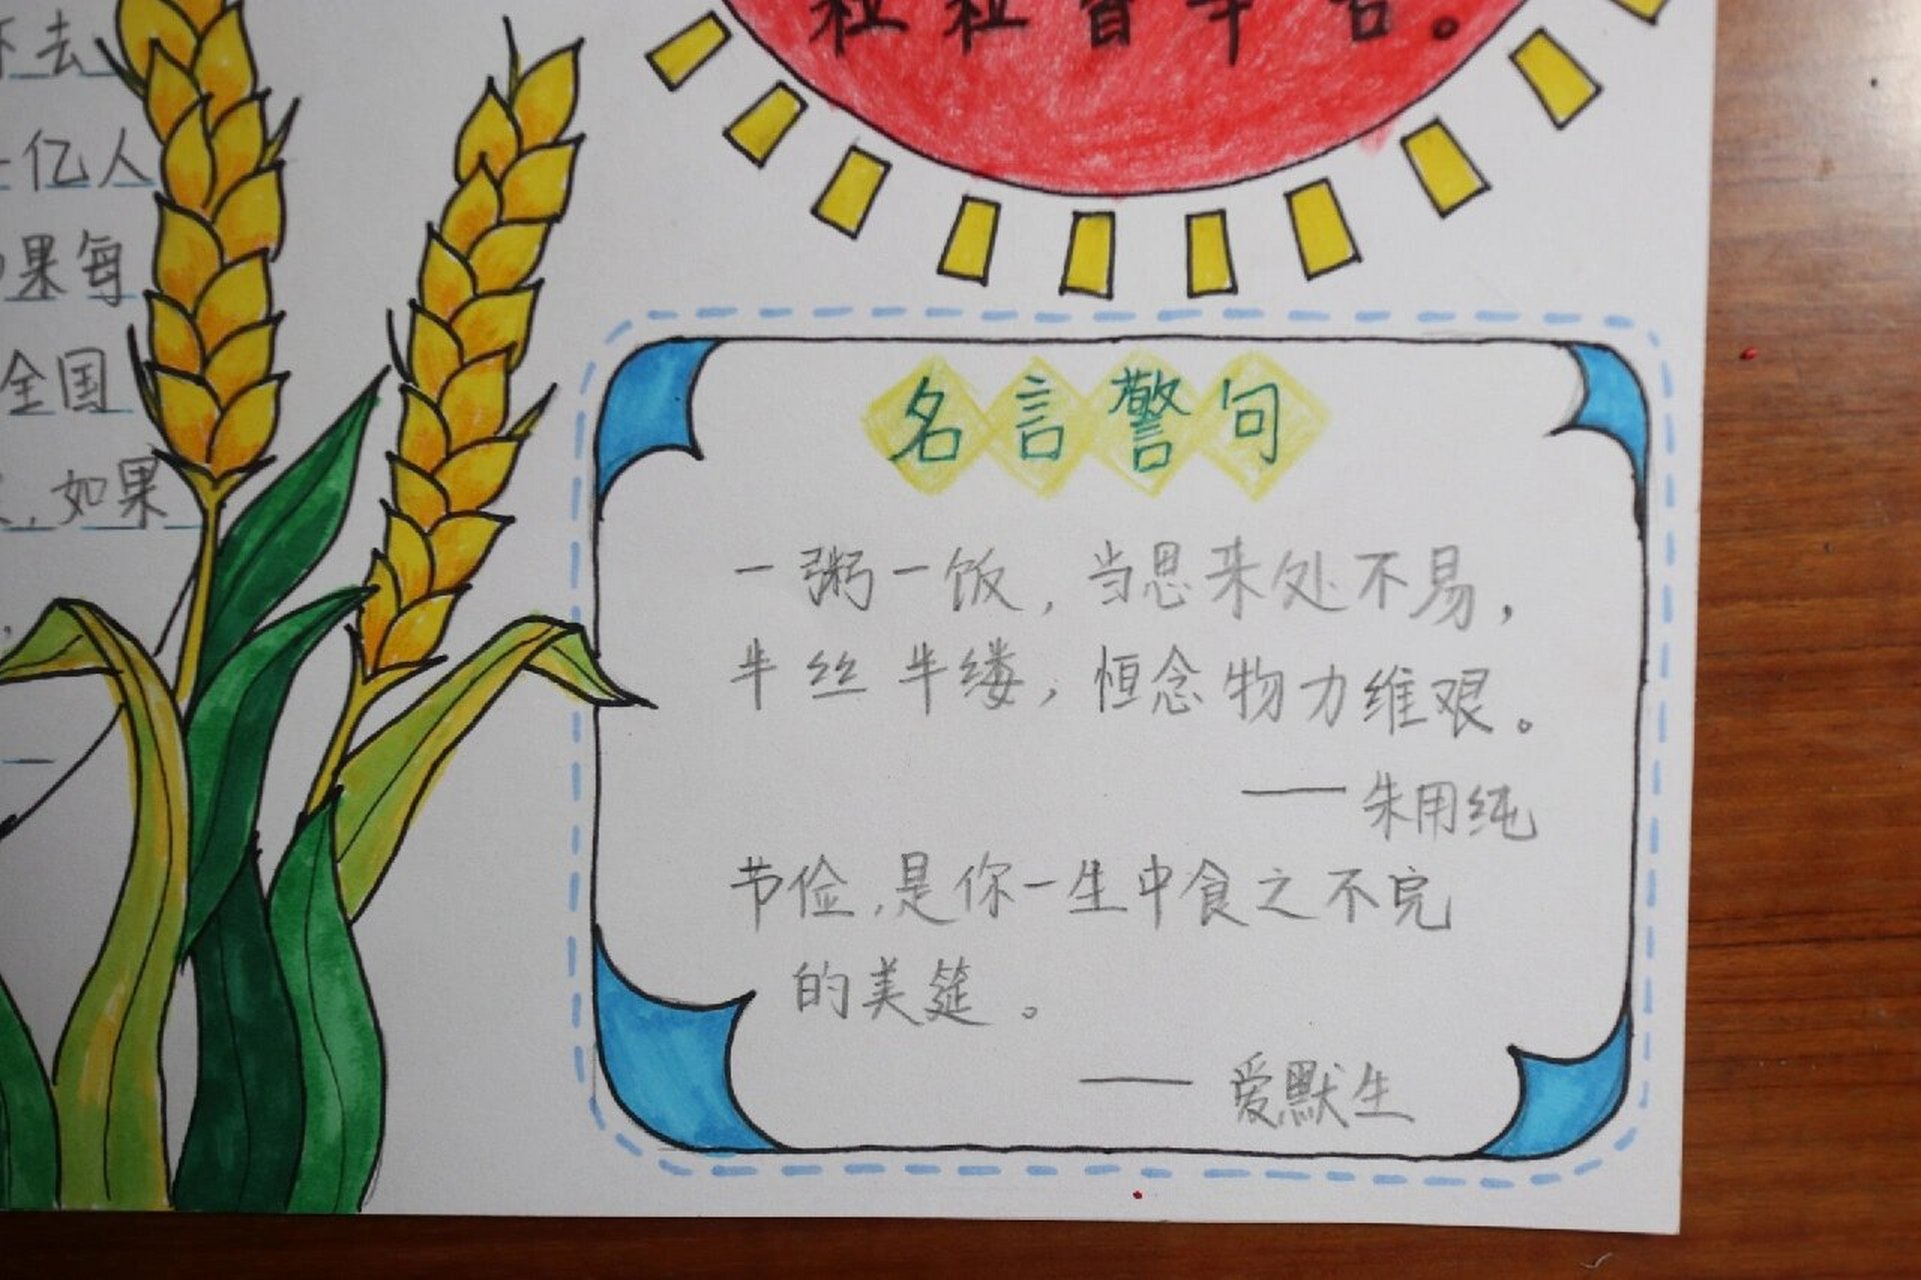 粒粒皆辛苦。
去
亿人
果每
全国
如果
名言警句
一粥一饭，当思来处不易，
半丝半缕，恒念物力维艰。
——朱用纯
节俭，是你一生中食之不完
的美筵。
——爱默生